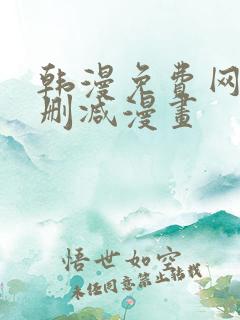 韩漫免费网
删减漫畫
悟世如空
未经同意禁止转载